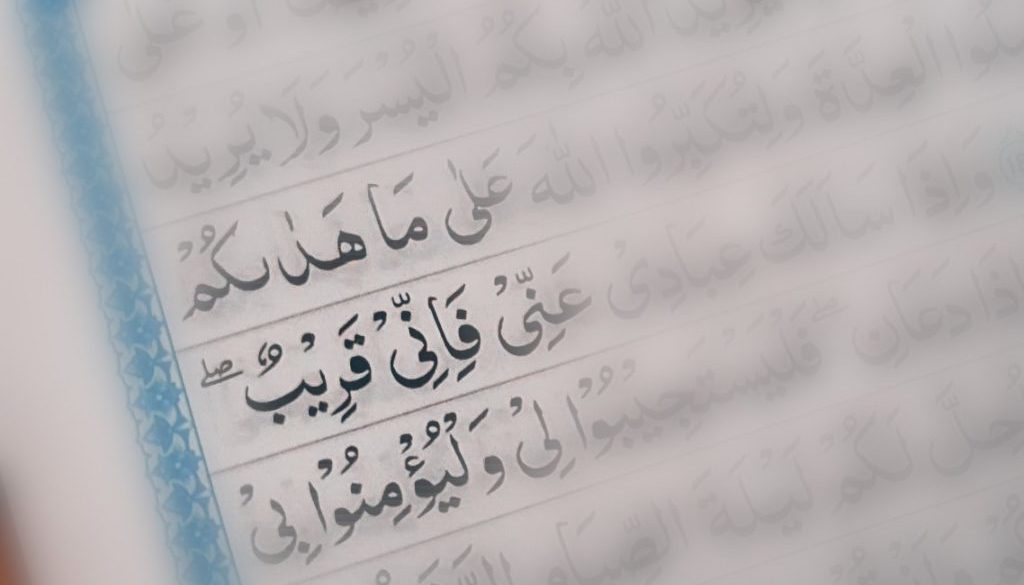 اَوْ عَلٰى
يُرِيْدُ اللّٰهُ بِكُمُ الْيُسْرَ وَلَا يُرِيْدُ
الْعِدَّةَ وَلِتُكَبِّرُوا اللّٰهَ عَلٰى مَا هَدٰىكُمْ
وَاِذَا سَاَلَكَ عِبَادِيْ عَنِّيْ فَاِنِّيْ قَرِيْبٌ ۖ
اِذَا دَعَانِ ۖ فَلْيَسْتَجِيْبُوْا لِيْ وَلْيُؤْمِنُوْا بِيْ
لَكُمْ لَيْلَةَ الصِّيَامِ